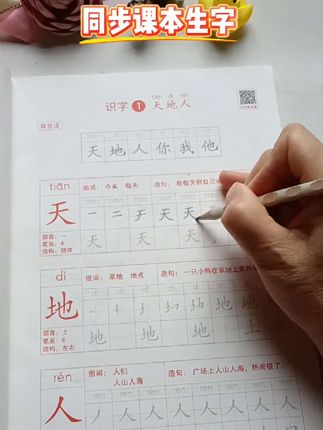 同步课本生字
tiān dì rén
识字 1 天地人
我会读
天地人你我他
tiān
组词：今天 每天 造句：我每天把自己
天 一 二 于 天 天
天 天 天
部首：一
笔画：4
结构：独体
dì
组词：草地 地点 造句：一只小狗在草地上奔
地
地 地 地 土
部首：土
笔画：6
结构：左右
rén
组词：人们 造句：广场上人山人海，热闹极了。
人山人海
人 丿 人 人 人 人 人 人